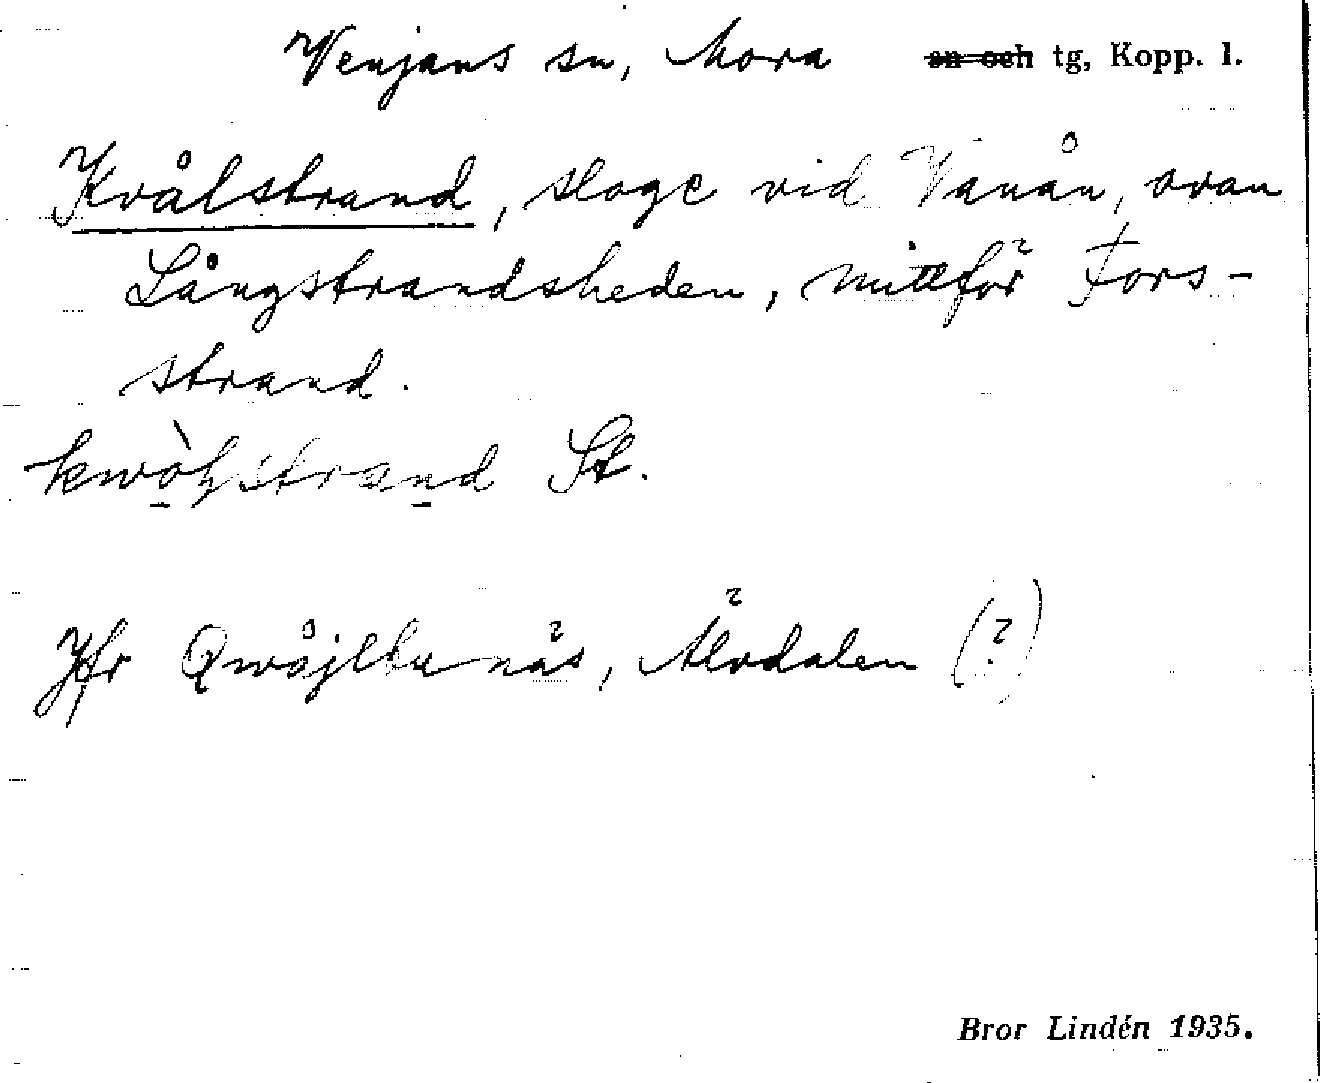 Venjans sn, Mora ~~sn och~~ tg, Kopp. l.
Kvålstrand, sloge vid Vanån, ovan
Långstrandsheden, mittför Fors-
strand.
St.
Jfr Älvdalen (?)
Bror Lindén 1935.